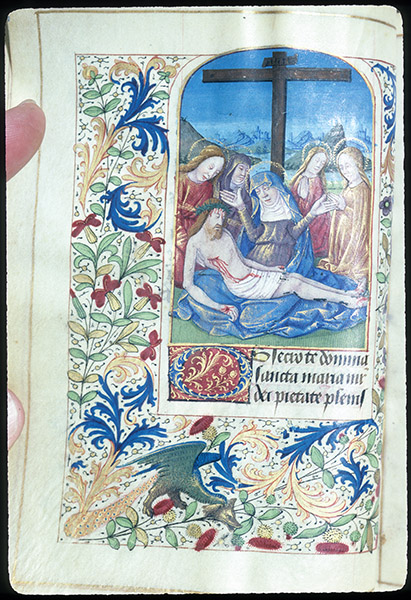 secro te domina
sancta maria mr
dei pietate plenis